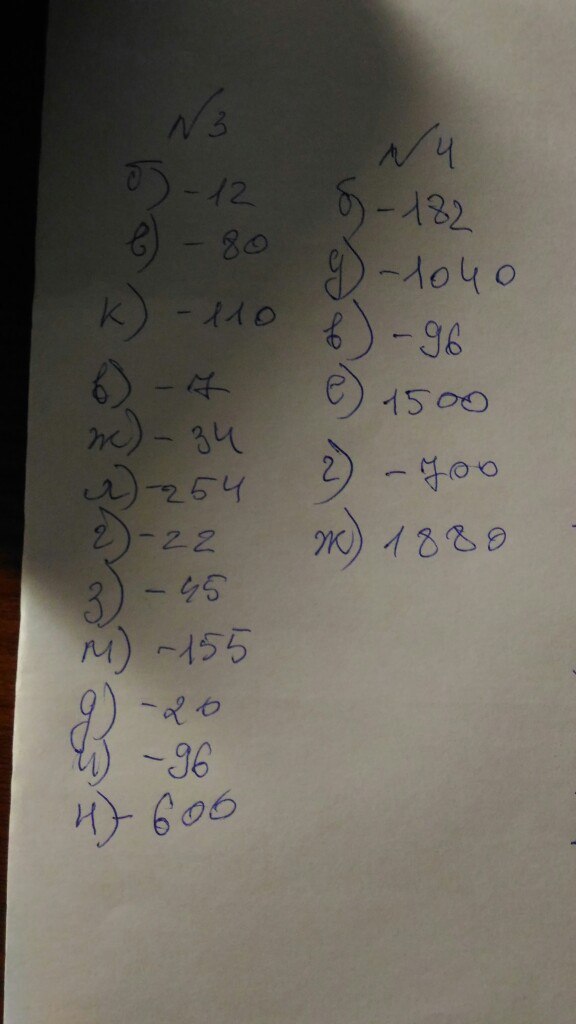 №3
б) -12
в) - 80
к) -110
в) - 7
ж) - 34
л) -254
г) -22
з) - 45
м) -155
д) -20
и) -96
н) - 600
№4
б) -182
д) -1040
в) -96
е) 1500
г) -700
ж) 1880